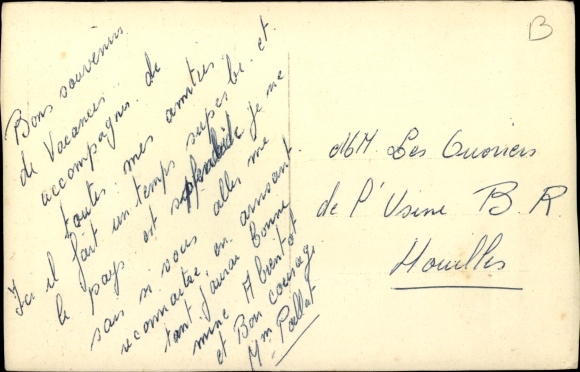 Bons souvenirs
de Vacances
accompagnes de
toutes mes amities
Ici il fait un temps superbe et
le pays est splendide je ne
sais si vous alles me
reconnaitre en arrisant
tant j'aurai bonne
mine A bientot
et Bon courage
Mm Paillat
B
MM. Les Ouvriers
de l'Usine B R
Houilles